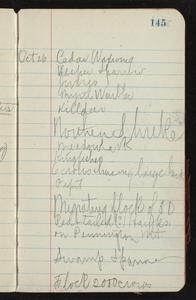 145
Oct 26 Cedar Waxwing
Vesper Sparrow
Juncos
Myrtle Warbler
Killdeer
Northern Shrike
Meadowlark
Kingfisher
Across new very large
Migrating flock of 30
Red tailed (?) Hawks
on Pennington Mt
Swamp Sparrow
Flock 2000 crows